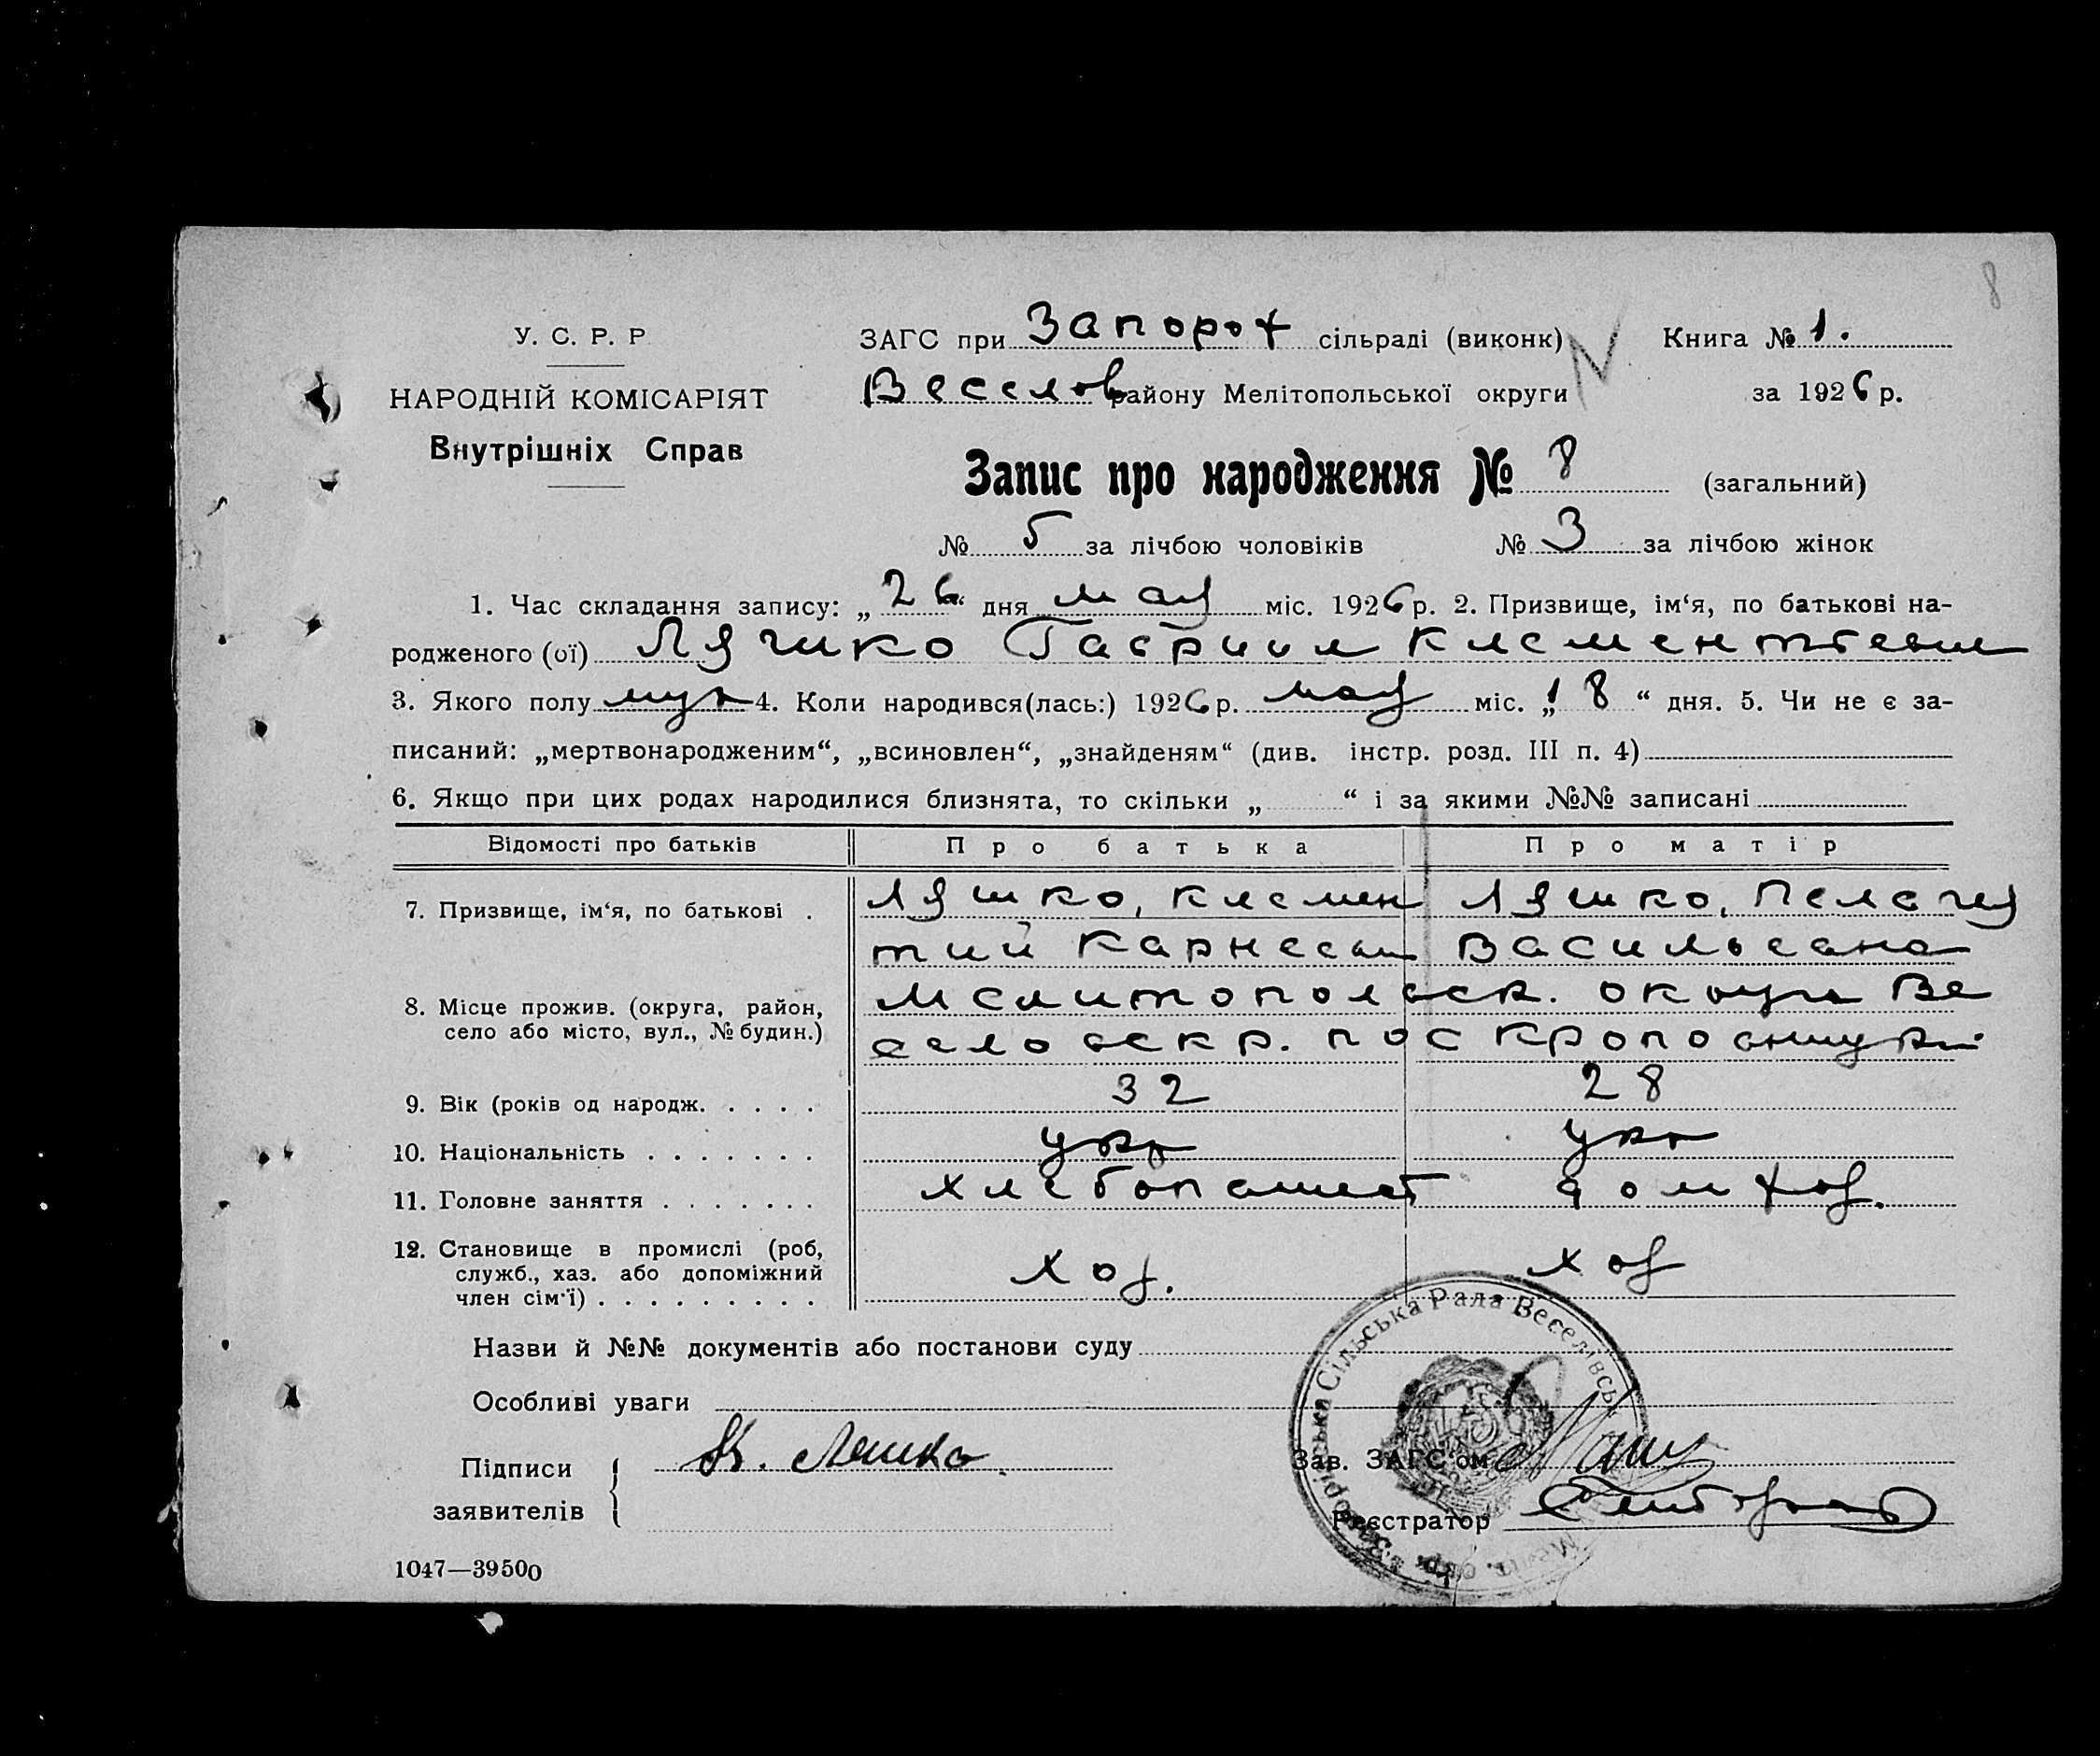 8
У. С. Р. Р
НАРОДНІЙ КОМІСАРІЯТ
Внутрішніх Справ
ЗАГС при Запорож сільраді (виконк)
Книга № 1.
Веселов району Мелітопольської округи
за 1926 р.
Запис про народження № 8 (загальний)
№ 5 за лічбою чоловіків № 3 за лічбою жінок
1. Час складання запису: „26“ дня мая міс. 1926 р. 2. Призвище, ім‘я, по батькові на-
родженого (ої) Ляшко Гавриил Клементьевич
3. Якого полу муж 4. Коли народився(лась:) 1926 р. мая міс. „18“ дня. 5. Чи не є за-
писаний: „мертвонародженим“, „всиновлен“, „знайденям“ (див. інстр. розд. III п. 4)
6. Якщо при цих родах народилися близнята, то скільки „ “ і за якими №№ записані
Відомості про батьків Про батька Про матір
7. Призвище, ім‘я, по батькові . Ляшко, Клемен Ляшко, Пелагея
тий Карнеевич Васильевна
8. Місце прожив. (округа, район, село або місто, вул., № будин.) Мелитопольск. округа Ве
селовск р. пос
9. Вік (років од народж. . . . . 32 28
10. Національність . . . . . . . укр укр
11. Головне заняття . . . . . . . хлебопашест дом хоз.
12. Становище в промислі (роб, служб., хаз. або допоміжний член сім‘ї) . . . . . . . . . хоз. хоз
Назви й №№ документів або постанови суду
Особливі уваги
Підписи
заявителів
К. Ляшко
Зав. ЗАГС‘ом
Реєстратор
Сільська Рада Веселівськ
1047—39500